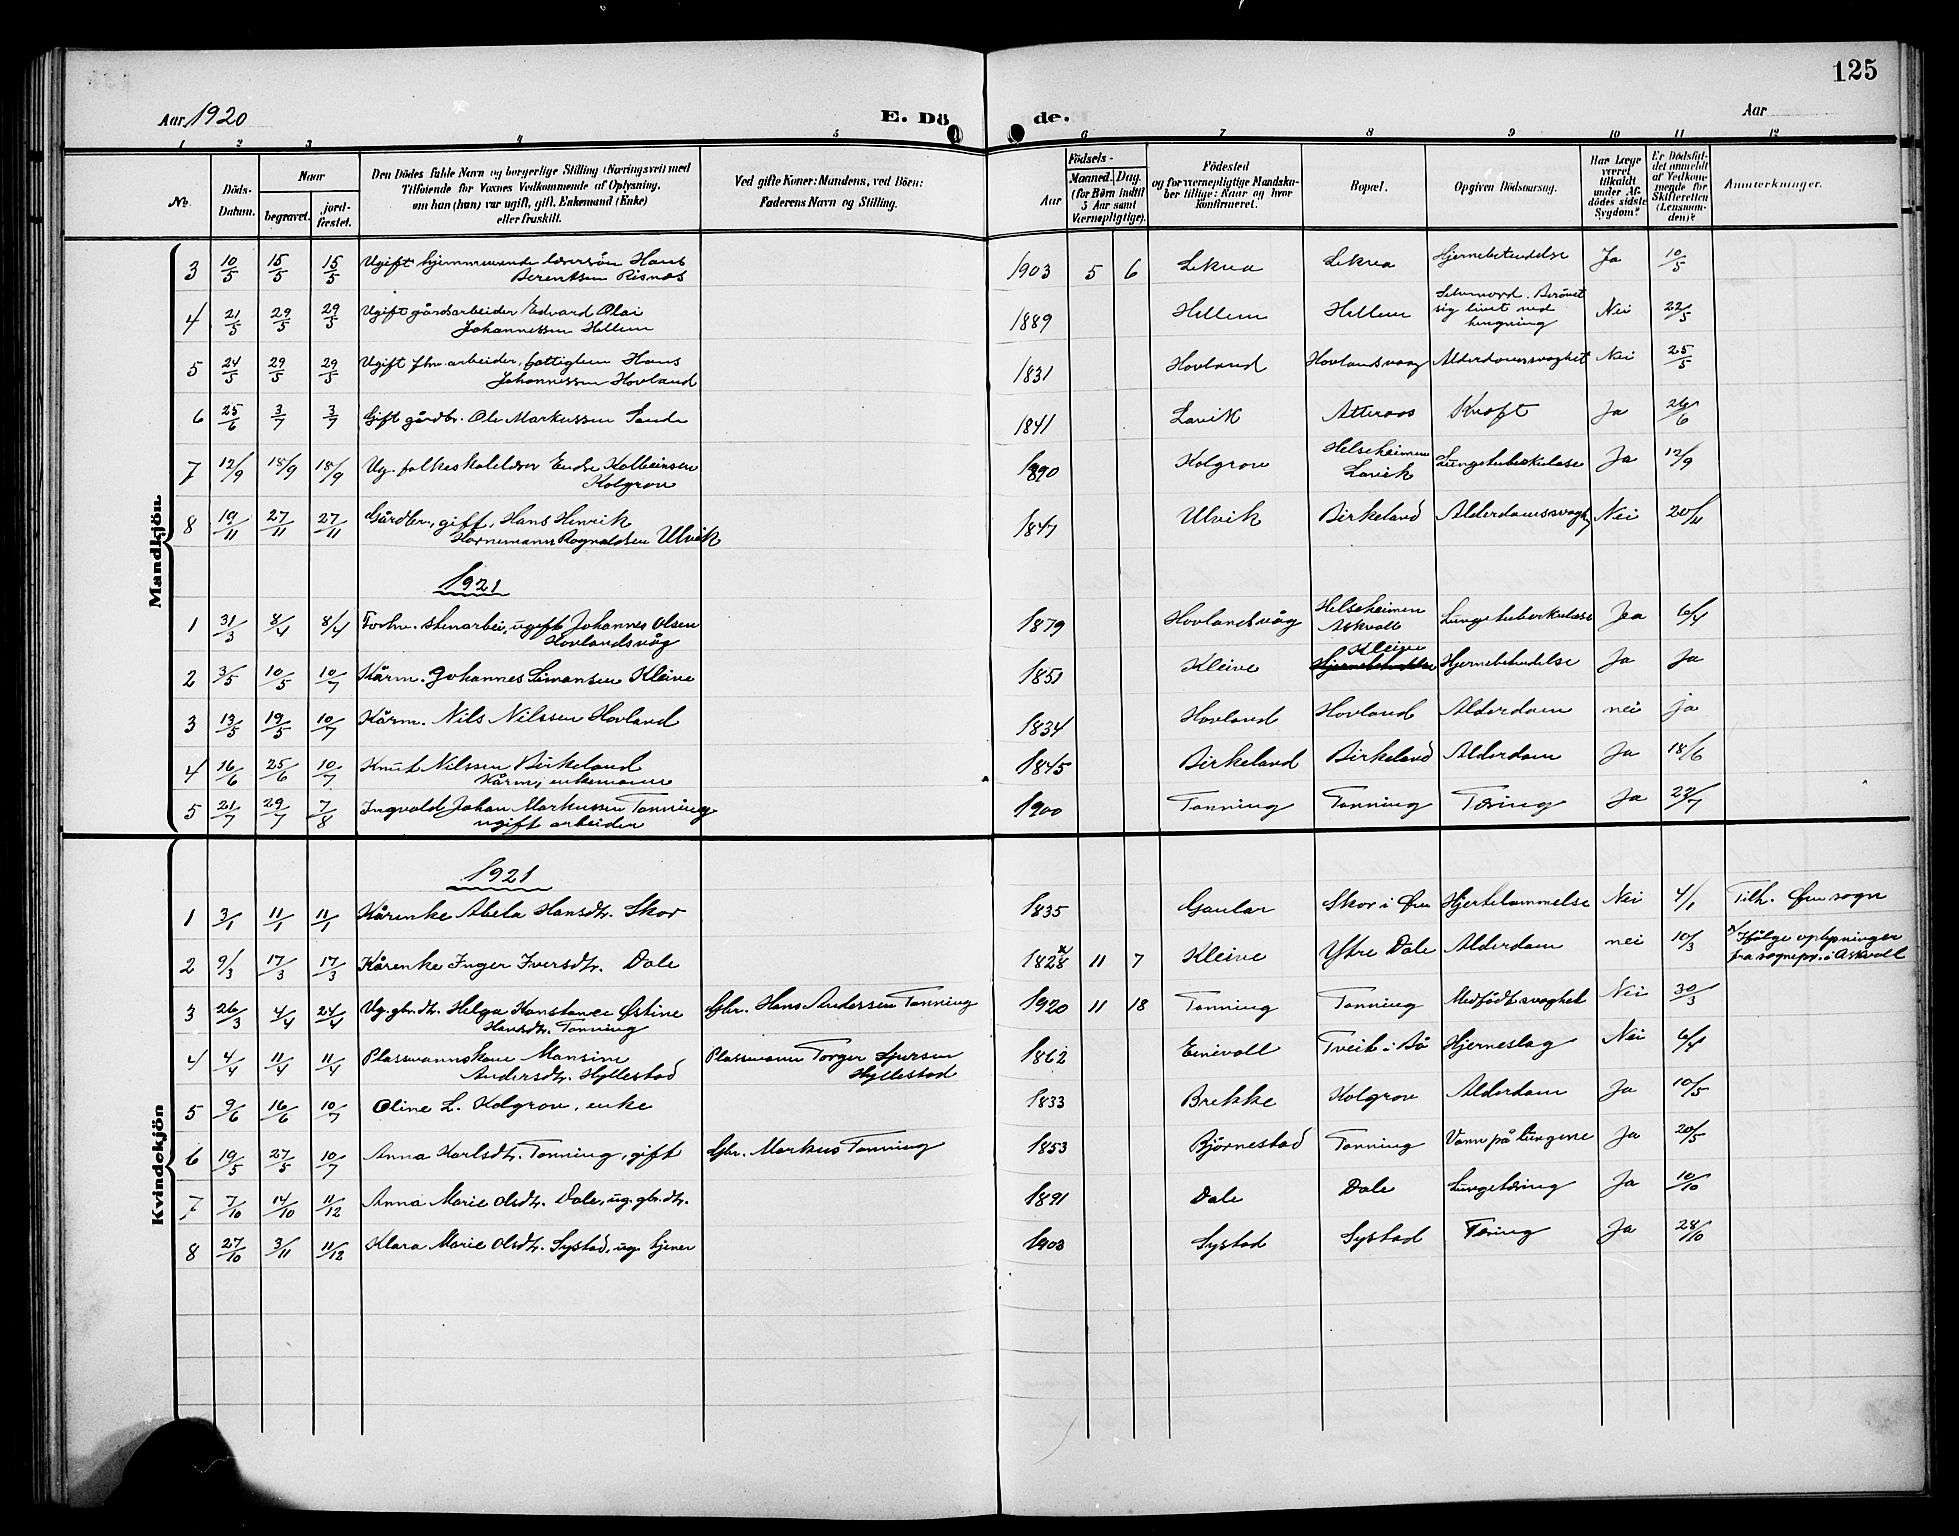 125
Aar 1920
E. Dö de.
Aar
1 2 3 4 5 6 7 8 9 10 11 12
No.
Döds-Datum.
Naar
begravet.
jord-fæstet.
Den Dödes fulde Navn og borgerlige Stilling (Næringsvei) med
Tilföiende for Voxnes Vedkommende af Oplysning,
om han (hun) var ugift, gift, Enkemand (Enke)
eller fraskilt.
Ved gifte Koner: Mandens, ved Börn:
Faderens Navn og Stilling.
Aar
Födsels-
Maaned. Dag.
(for Börn indtil
5 Aar samt
Værnepligtige).
Födested
og for værnepligtige Mandska-
ber tillige: Naar og hvor
konfirmeret.
Bopæl.
Opgiven Dödsaarsag.
Har Læge
været
tilkaldt
under Af-
dödes sidste
Sygdom?
Er Dödsfal-
det anmeldt
af Vedkom-
mende for
Skifteretten
(Lensman-
den)?
Anmerkninger.
Mandkjön
3 10/5 15/5 15/5 Ugift hjemmeværende Hans 1903 5 6 Lekva Lekva Hjernebetendelse Ja 10/5
Berentsen Risnes
4 21/5 29/5 29/5 Ugift gårdsarbeider Edvard Olai 1889 Hellem Hellem Selvmord. Berövet Nei 22/5
Johannessen Hellem sig livet ved
hengning
5 24/5 29/5 29/5 Ugift fhv. arbeider, fattiglem Hans 1831 Hovland Hovlandsvaag Alderdomssvaghet Nei 25/5
Johannessen Hovland
6 25/6 3/7 3/7 Gift gårdbr. Ole Markussen Sande 1841 Lavik Atteraas Kræft Ja 26/6
7 12/9 18/9 18/9 Ug. folkeskolelærer Endre Kolbeinsen 1890 Kolgrov Helseheimen Lungetuberkulose Ja 12/9
Kolgrov Lavik
8 19/11 27/11 27/11 Gårdbr., gift, Hans Henrik 1847 Ulvik Birkeland Alderdomssvagh Nei 20/11
Hornemann Rognaldsen Ulvik
1921
1 31/3 8/4 8/4 Forhv. stenarbei, ugift Johannes Olsen 1879 Hovlandsvåg Helseheimen Lungetuberkulose Jea 6/4
Hovlandsvåg Askvoll
2 3/5 10/5 10/7 Kårm. Johannes Simansen Kleive 1851 Kleive Kleive Hjernebetendelse Ja Ja
3 13/5 19/5 10/7 Kårm. Nils Nilssen Hovland 1834 Hovland Hovland Alderdom nei ja
4 16/6 25/6 10/7 Knut Nilssen Birkeland 1845 Birkeland Birkeland Alderdom Ja 18/6
Kårm, enkemann
5 21/7 29/7 7/8 Ingvald Johan Markussen Tonning 1900 Tonning Tonning Tæring Ja 22/7
ugift arbeider
Kvindekjön
1921
1 3/1 11/1 11/1 Kårenke Abela Hansdtr. Skor 1835 Gaular Skor i Øen Hjertelammelse Nei 4/1 Tilh. Øen sogn
2 9/3 17/3 17/3 Kårenke Inger Iversdtr. Dale 1828 x/ 11 7 Kleive Ytre Dale Alderdom nei 10/3 x/ Ifølge oplysninger
fra sognepr. i Askvoll
3 26/3 4/4 24/4 Ug. gbr.dtr. Helga Konstanse Østine Gbr. Hans Andersen Tonning 1920 11 18 Tonning Tonning Medfødt svaghet Nei 30/3
Hansdtr. Tonning
4 4/4 11/4 11/4 Plassmannskone Mansine Plassmann Torger 1862 Einevoll Tveit i Bö Hjerneslag Nei 6/4
Andersdtr. Hyllestad Hyllestad
5 9/6 16/6 10/7 Oline L. Kolgrov, enke 1833 Brekke Kolgrov Alderdom Ja 10/5
6 19/5 27/5 10/7 Anna Karlsdtr. Tonning, gift Gbr. Markus Tonning 1853 Bjørnestad Tonning Vann på lungene Ja 20/5
7 7/10 14/10 11/12 Anna Marie Olsdtr. Dale, ug. gbr.dtr. 1891 Dale Dale Lungetæring Ja 10/10
8 27/10 3/11 11/12 Klara Marie Olsdtr. Systad, ug. tjener 1903 Systad Systad Tæring Ja 28/10